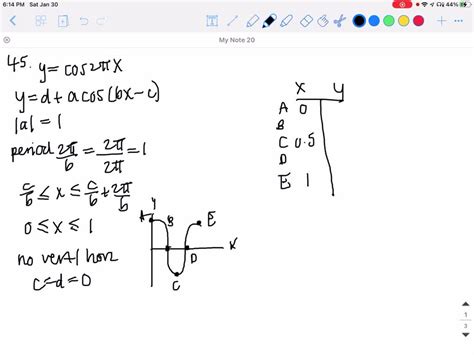 6:14 PM Sat Jan 30
44%
My Note 20
45. y = cos2πx
y = d + a cos(bx - c)
|a| = 1
period 2π/b = 2π/2π = 1
c/b ≤ x ≤ c/b + 2π/b
0 ≤ x ≤ 1
no vert/horz
c = d = 0
y
A
B
E
x
D
C
x y
A 0
B
C 0.5
D
E 1
1
3